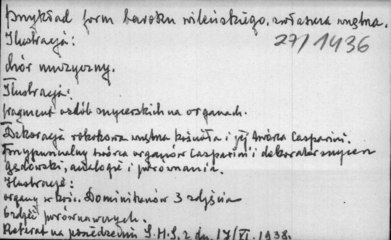 Przykład form baroku wileńskiego, zwłaszcza wnętrza.
27/1936
Ilustracja:
chór muzyczny.
Ilustracja:
fragment ozdób snycerskich na organach.
Dekoracja rokokowa wnętrza kościoła i jej twórca Casparini.
Przypuszczalny twórca organów Casparini i dekorator snycerz
analogie i porównania.
Ilustracje:
organy w kośc. Dominikanów 3 zdjęcia
6 zdjęć porównawczych.
Referat na posiedzeniu S.H.S. z dn. 17/VI. 1938.